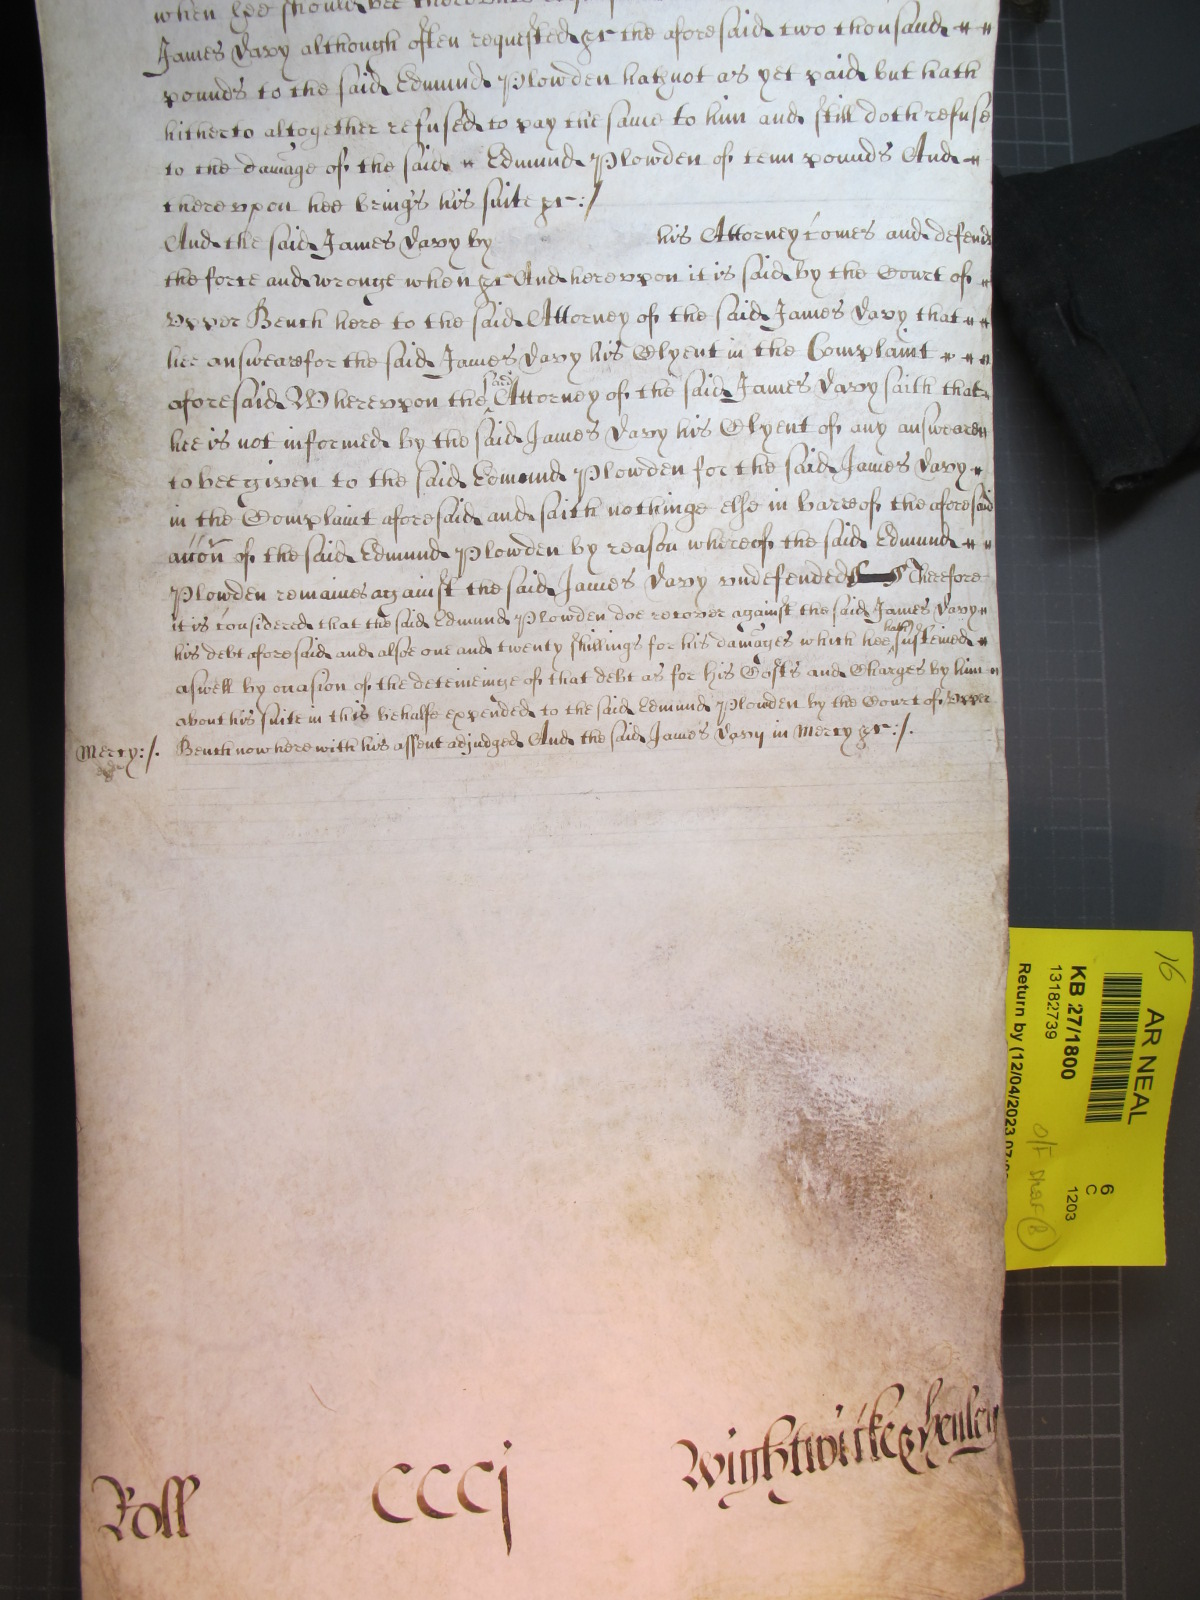 when hee should bee thereunto
James Davy although often requested &c the aforesaid two thousand
pounds to the said Edmund Plowden hath not as yet paid but hath
hitherto altogether refused to pay the same to him and still doth refuse
to the damage of the said Edmund Plowden of tenn pounds And
thereupon hee brings his suite &c:/
And the said James Davy by his Attorney comes and defends
the force and wronge when &c And hereupon it is said by the Court of
Upper Bench here to the said Attorney of the said James Davy that
hee answeare for the said James Davy his Clyent in the Complaint
aforesaid Whereupon the said Attorney of the said James Davy saith that
hee is not informed by the said James Davy his Clyent of any answeare
to bee given to the said Edmund Plowden for the said James Davy
in the Complaint aforesaid and saith nothinge else in barre of the aforesaid
accon of the said Edmund Plowden by reason whereof the said Edmund
Plowden remaines against the said James Davy undefended Therefore
it is considered that the said Edmund Plowden doe recover against the said James Davy
his debt aforesaid and alsoe one and twenty shillings for his damages which hee hath susteined
aswell by occasion of the deteineinge of that debt as for his Costs and Charges by him
about his suite in this behalfe expended to the said Edmund Plowden by the Court of Upper
Mercy:/. Bench now here with his assent adjudged And the said James Davy in Mercy &c:/.
Roll CCCj Wightwicke & Henley
16
AR NEAL
KB 27/1800
13182739
Return by (12/04/2023
6
C
1203